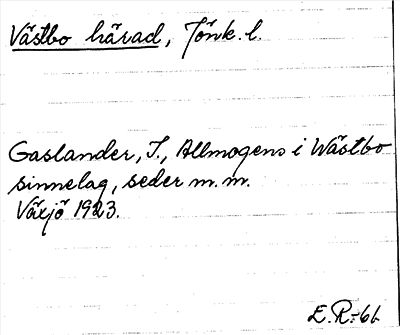 Västbo härad, Jönk. l.
Gaslander, J., Allmogens i Wästbo
sinnelag, seder m.m.
Växjö 1923.
E.R-66